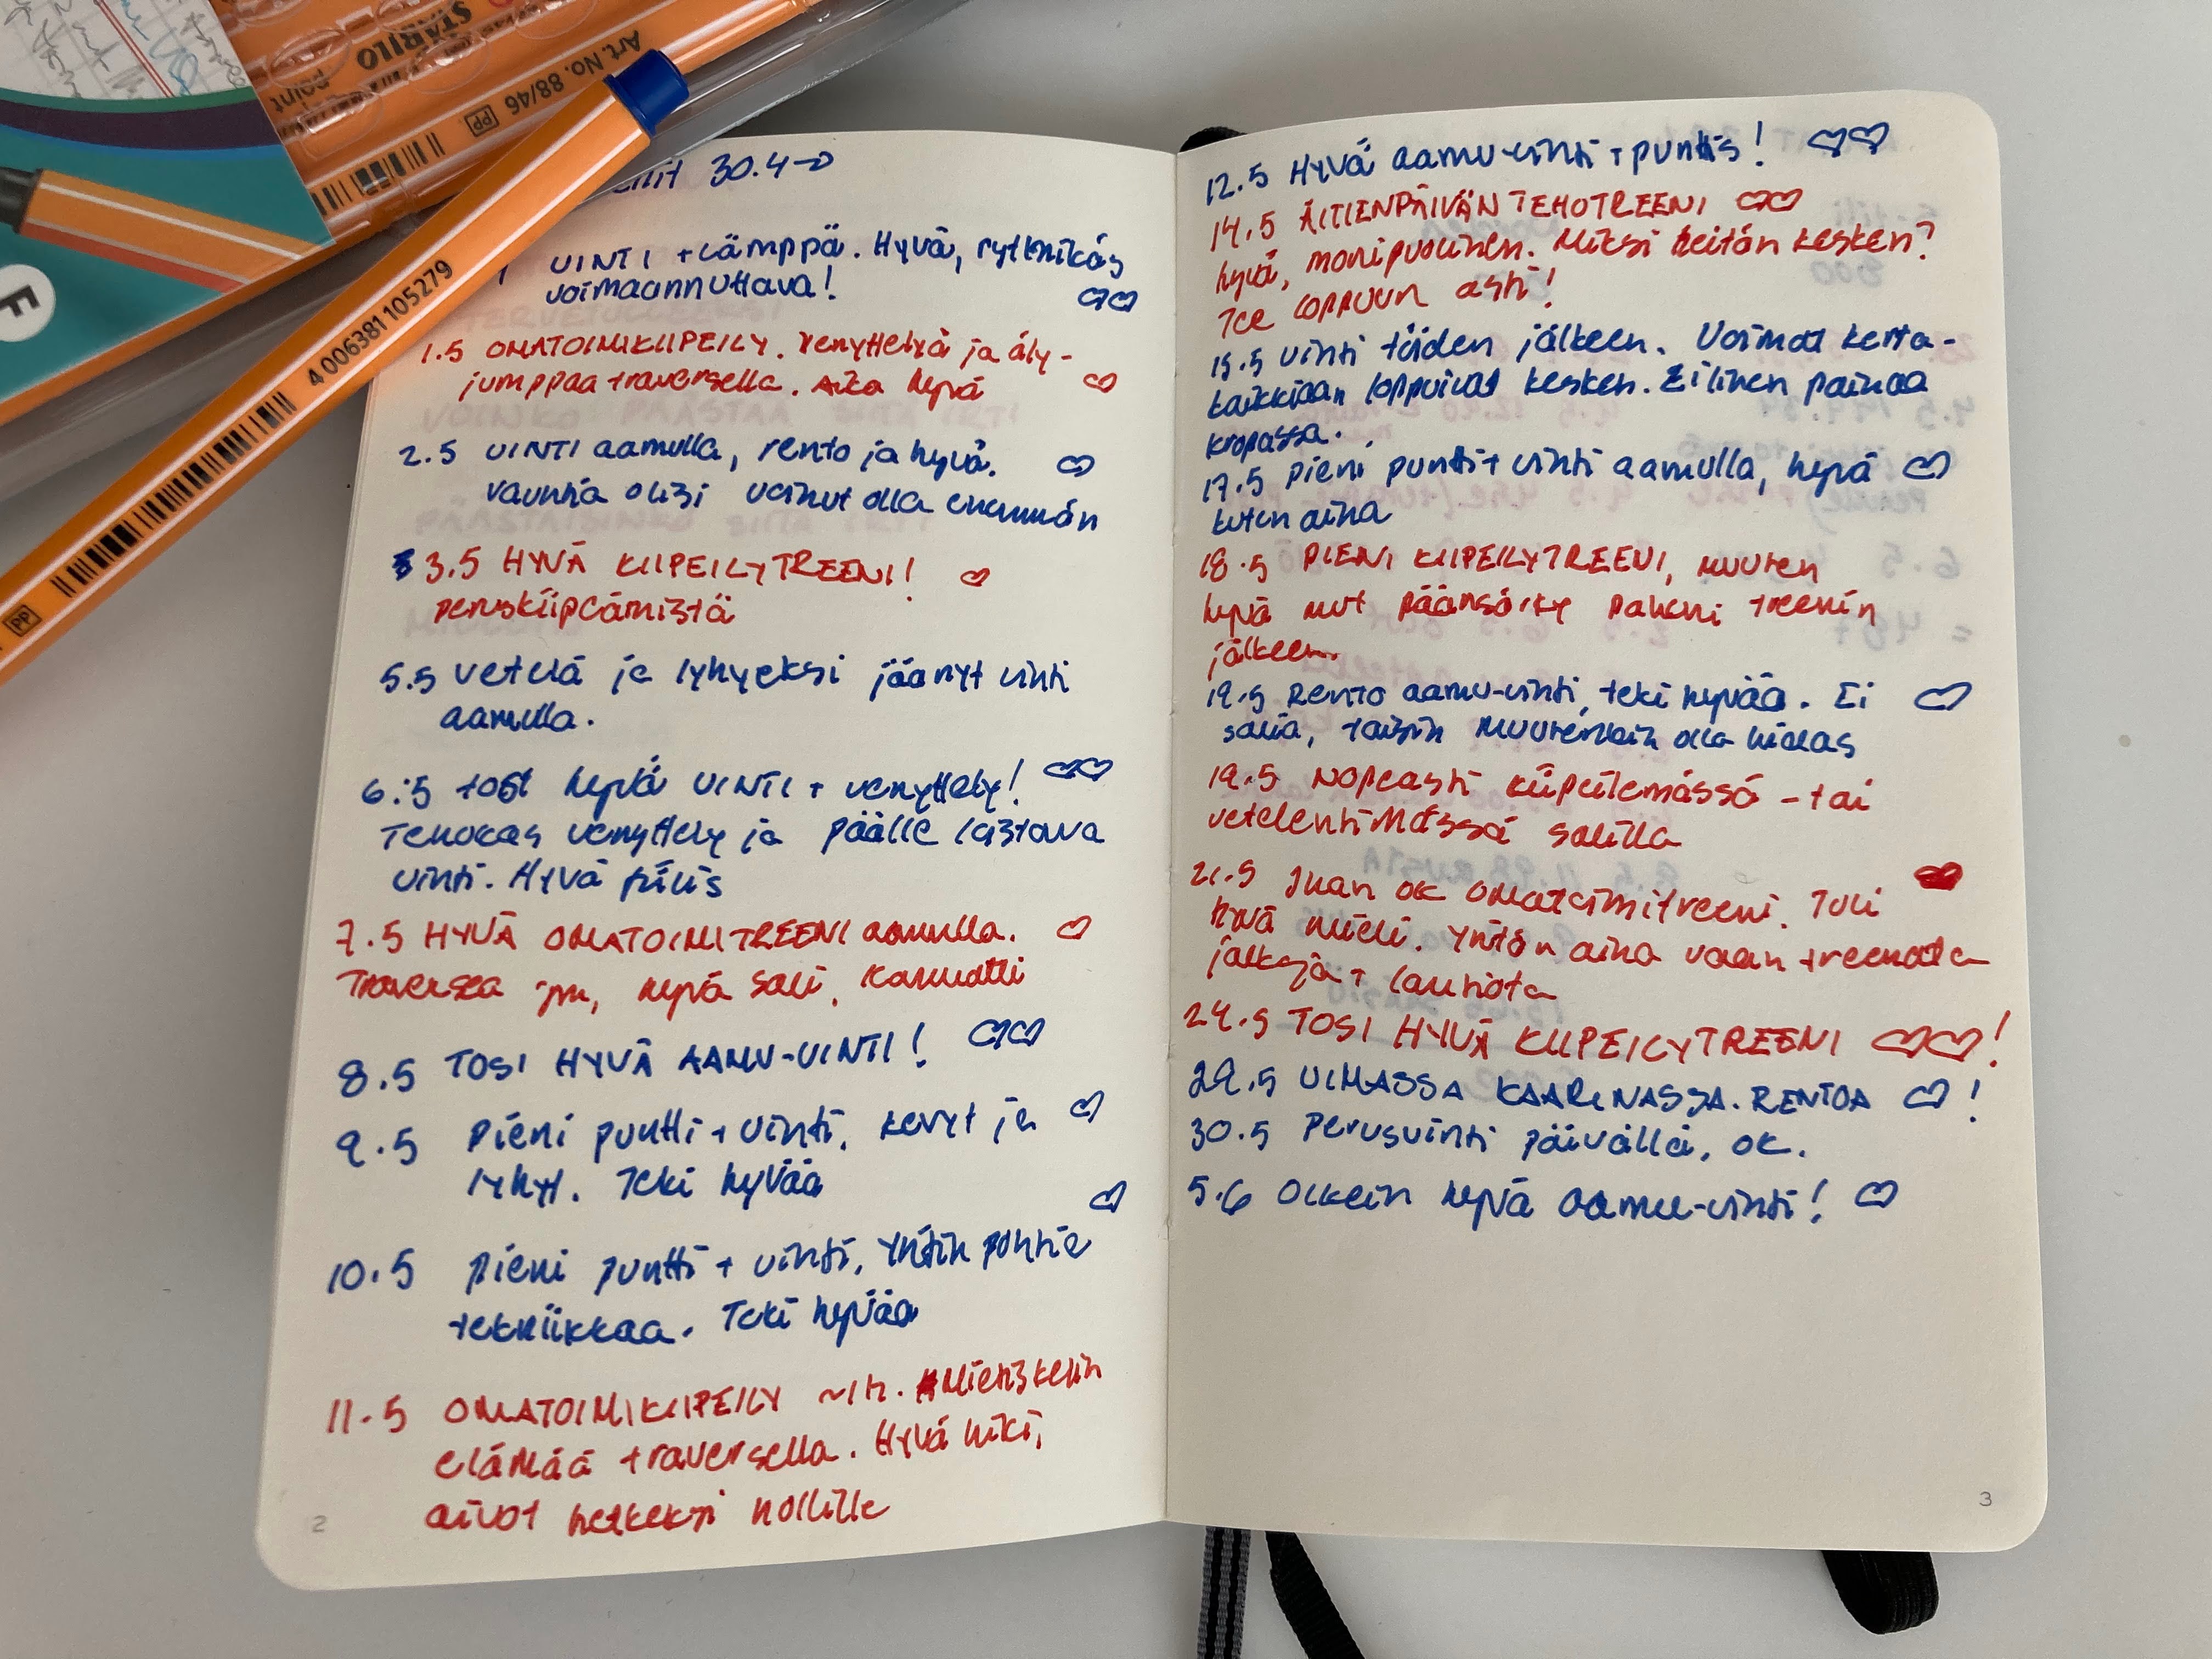 STABILO
point
Art. No. 88/46
PP
4 006381 105279
PP
F
30.4→
UINTI + lämppä. Hyvä, rytmikäs
voimaannuttava!
1.5 OMATOIMIKIIPEILY. Venyttelyä ja äly-
jumppaa traversella. Aika hyvä
2.5 UINTI aamulla, rento ja hyvä.
vauhtia olisi voinut olla enemmän
3.5 HYVÄ KIIPEILYTREENI!
peruskiipeämistä
5.5 vetelä ja lyhyeksi jäänyt uinti
aamulla.
6.5 tosi hyvä UINTI + venyttely!
Tehokas venyttely ja päälle loistava
uinti. Hyvä fiilis
7.5 HYVÄ OMATOIMITREENI aamulla.
Traversea ym, hyvä sali, kannatti
8.5 TOSI HYVÄ AAMU-UINTI!
9.5 Pieni puntti + uinti, kevyt ja
lyhyt. Teki hyvää
10.5 pieni puntti + uinti, Yritin pohtia
tekniikkaa. Teki hyvää
11.5 OMATOIMIKIIPEILY ~1h. Mietiskelin
elämää traversella. Hyvä hiki,
aivot hetkeksi nollille
2
12.5 Hyvä aamu-uinti + puntis!
14.5 ÄITIENPÄIVÄN TEHOTREENI
hyvä, monipuolinen. Miksi heitän kesken?
Tee loppuun asti!
15.5 uinti töiden jälkeen. Voimat kerta-
kaikkiaan loppuivat kesken. Eilinen painaa
kropassa.
17.5 pieni puntti + uinti aamulla, hyvä
kuten aina
18.5 PIENI KIIPEILYTREENI, muuten
hyvä mut päänsärky paheni treenin
jälkeen.
19.5 Rento aamu-uinti, teki hyvää. Ei
salia, taisin muutenkin olla hidas
19.5 Nopeasti kiipeilemässä - tai
vetelehtimässä salilla
21.5 Ihan ok omatoimitreeni. Tuli
hyvä mieli. Yritän aina vaan treenata
jalkoja + lantiota
24.5 TOSI HYVÄ KIIPEILYTREENI !
29.5 UIMASSA KAARINASSA. RENTOA !
30.5 Perusuinti päivällä, ok.
5.6 Oikein hyvä aamu-uinti!
3